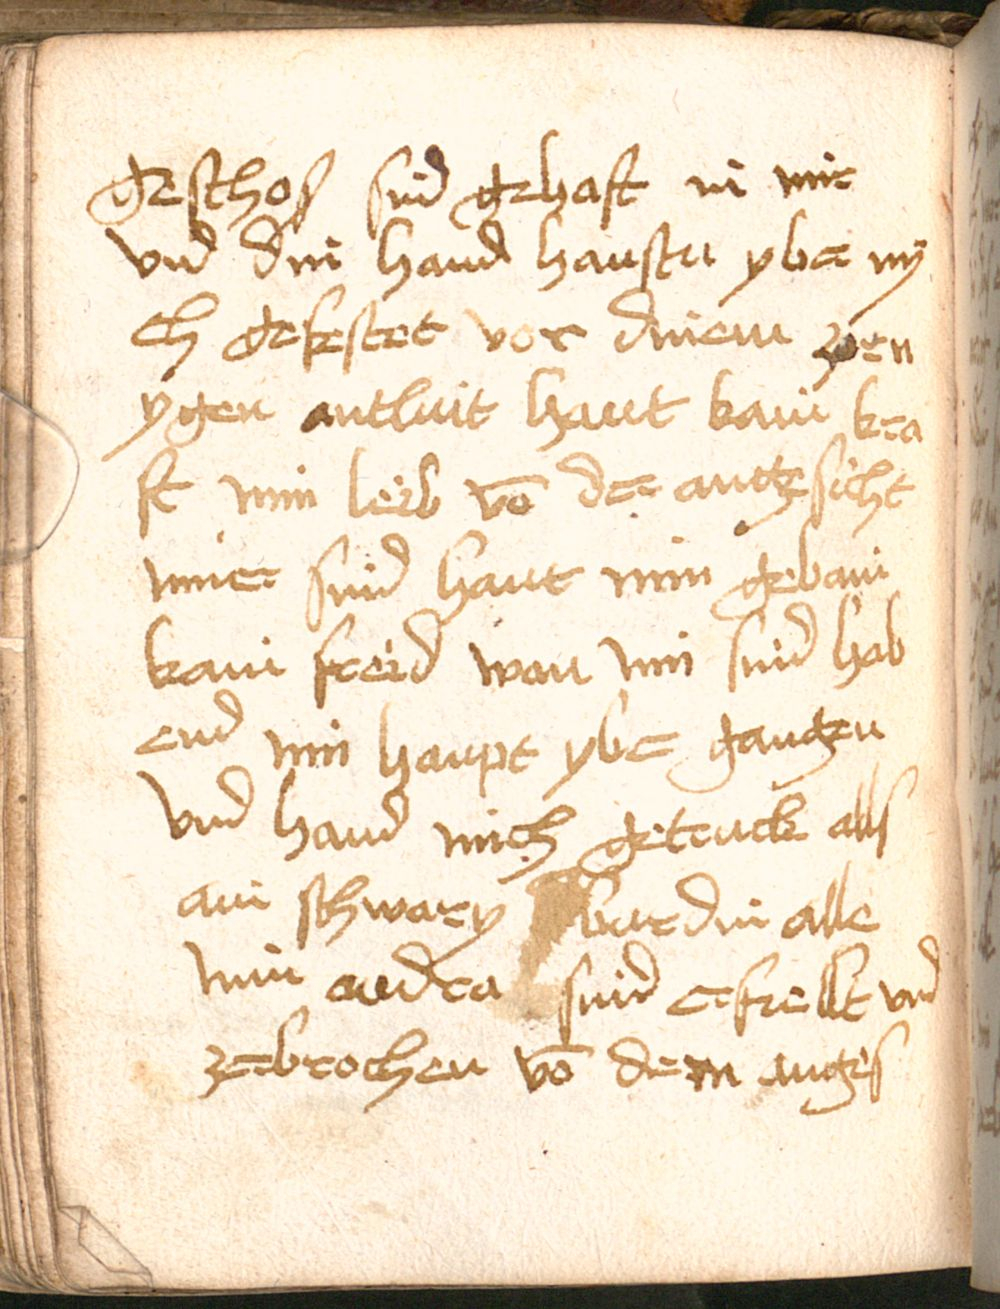 geschos sind gehaft in mir
vnd din hand haustu yber my
ch gefestet vor dinem zorn
ygen antluit haut kain kra
ft min leib vo̅ der angesicht
miner sind haut min gebain
kain freid wan min sind hab
end min haupt yber gangen
vnd hand mich getruck alls
ain schwary burdin alle
min audra sind erfrellt vnd
zebrochen vo̅ dem anges